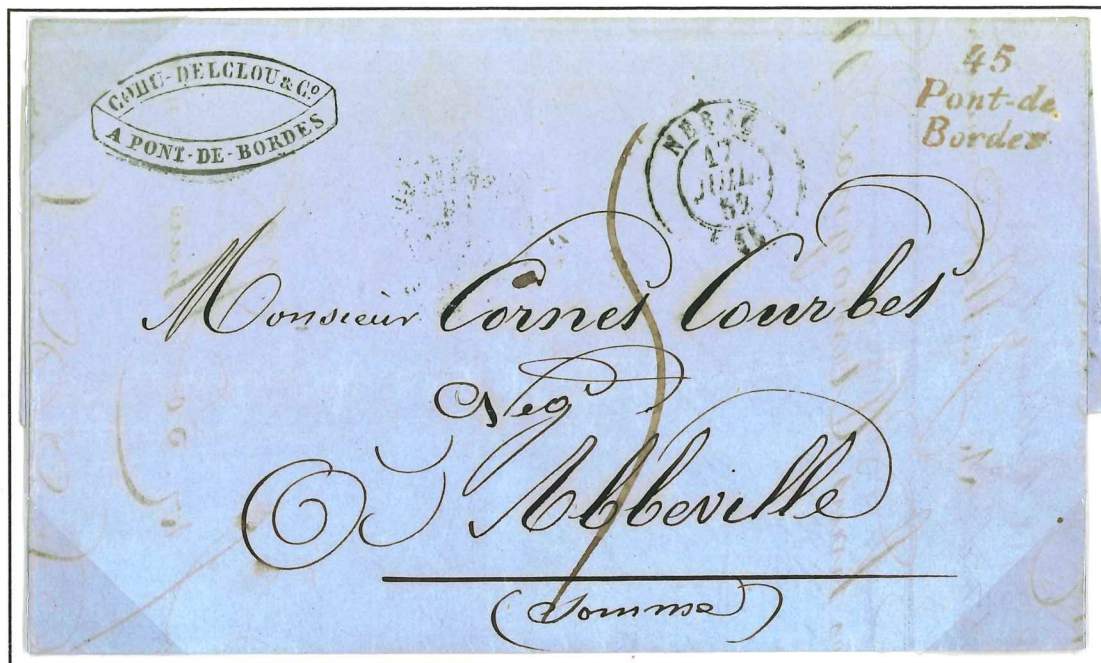 CAHU-DELCLOU & Cº
A PONT-DE-BORDES
45
Pont-de
Bordes
NERAC
17
JUIL.
52
(45)
Monsieur Cornes Courbes
Negt
Abbeville
(Somme)